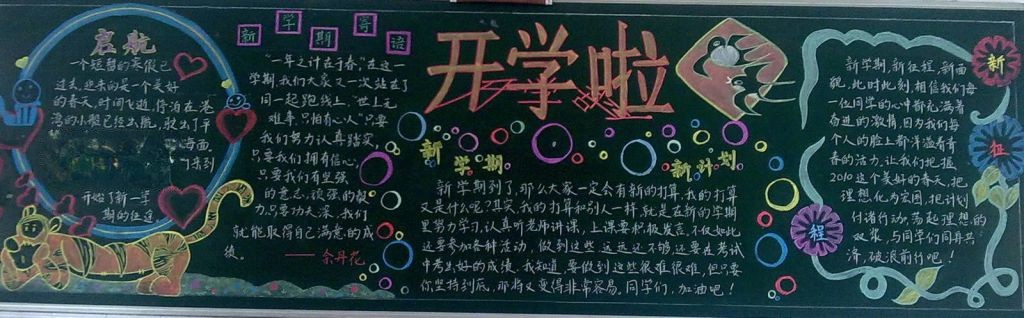 启航
一个短暂的寒假已
过去，迎来的是一个美好
的春天，时间飞逝，停泊在港
湾的小船已经出航，驶出了平
海面，
来到
开始了新一学
期的征途
新学期寄语
"一年之计在于春"在这一
学期，我们大家又一次站在了
同一起跑线上，"世上无
难事，只怕有心人"只要
我们努力认真踏实，
只要我们拥有信心，
只要我们有坚强
的意志，顽强的毅
力，只要功夫深，我们
就能取得自己满意的成
绩。
——余丹花
开学啦
新学期 新计划
新学期到了，那么大家一定会有新的打算，我的打算
又是什么呢？其实，我的打算和别人一样，就是在新的学期
里努力学习，认真听老师讲课，上课要积极发言，不仅如此
还要参加各种活动，做到这些远远还不够，还要在考试
中考出好的成绩，我知道，要做到这些很难很难，但只要
你坚持到底，那将又变得非常容易。同学们，加油吧！
新征程
新学期，新征程，新面
貌，此时此刻，相信我们每
一位同学的心中都充满着
奋进的激情，因为我们每
个人的脸上都洋溢着青
春的活力，让我们把握
2010这个美好的春天，把
理想化为宏图，把计划
付诸行动，荡起理想的
双桨，与同学们同舟共
济，破浪前行吧！